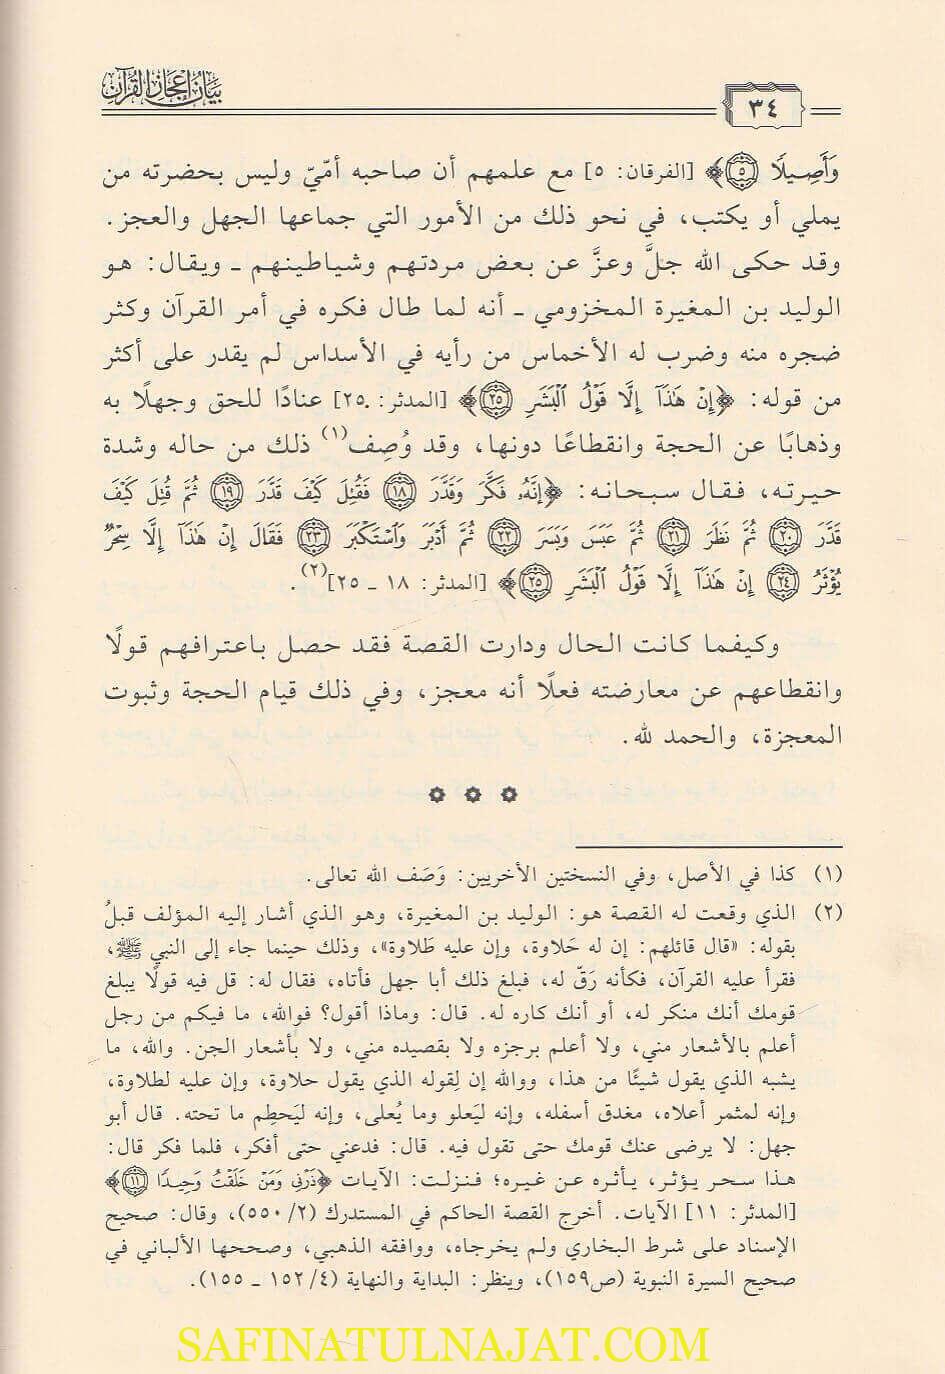 بيان إعجاز القرآن
٣٤
وَأَصِيلًا ۝٥﴾ [الفرقان: ٥] مع علمهم أن صاحبه أمّيّ وليس بحضرته من
يملي أو يكتب، في نحو ذلك من الأمور التي جماعها الجهل والعجز.
وقد حكى الله جلَّ وعزَّ عن بعض مردتهم وشياطينهم ـ ويقال: هو
الوليد بن المغيرة المخزومي ـ أنه لما طال فكره في أمر القرآن وكثر
ضجره منه وضرب له الأخماس من رأيه في الأسداس لم يقدر على أكثر
من قوله: ﴿إِنۡ هَٰذَآ إِلَّا قَوۡلُ ٱلۡبَشَرِ ۝٢٥﴾ [المدثر: ٢٥] عنادًا للحق وجهلًا به
وذهابًا عن الحجة وانقطاعًا دونها، وقد وُصِف(١) ذلك من حاله وشدة
حيرته، فقال سبحانه: ﴿إِنَّهُۥ فَكَّرَ وَقَدَّرَ ۝١٨ فَقُتِلَ كَيۡفَ قَدَّرَ ۝١٩ ثُمَّ قُتِلَ كَيۡفَ
قَدَّرَ ۝٢٠ ثُمَّ نَظَرَ ۝٢١ ثُمَّ عَبَسَ وَبَسَرَ ۝٢٢ ثُمَّ أَدۡبَرَ وَٱسۡتَكۡبَرَ ۝٢٣ فَقَالَ إِنۡ هَٰذَآ إِلَّا سِحۡرٌ
يُؤۡثَرُ ۝٢٤ إِنۡ هَٰذَآ إِلَّا قَوۡلُ ٱلۡبَشَرِ ۝٢٥﴾ [المدثر: ١٨ ـ ٢٥](٢).
وكيفما كانت الحال ودارت القصة فقد حصل باعترافهم قولًا
وانقطاعهم عن معارضته فعلًا أنه معجز، وفي ذلك قيام الحجة وثبوت
المعجزة، والحمد لله.
(١) كذا في الأصل، وفي النسختين الأخريين: وَصَف الله تعالى.
(٢) الذي وقعت له القصة هو: الوليد بن المغيرة، وهو الذي أشار إليه المؤلف قبلُ
بقوله: «قال قائلهم: إن له حَلاوة، وإن عليه طَلاوة»، وذلك حينما جاء إلى النبي ﷺ،
فقرأ عليه القرآن، فكأنه رَقّ له، فبلغ ذلك أبا جهل فأتاه، فقال له: قل فيه قولًا يبلغ
قومك أنك منكر له، أو أنك كاره له. قال: وماذا أقول؟ فوالله، ما فيكم من رجل
أعلم بالأشعار مني، ولا أعلم برجزه ولا بقصيده مني، ولا بأشعار الجن. والله، ما
يشبه الذي يقول شيئًا من هذا، ووالله إن لِقوله الذي يقول حلاوة، وإن عليه لطلاوة،
وإنه لمثمر أعلاه، مغدق أسفله، وإنه ليَعلو وما يُعلى، وإنه ليَحطِم ما تحته. قال أبو
جهل: لا يرضى عنك قومك حتى تقول فيه. قال: فدعني حتى أفكر، فلما فكر قال:
هذا سحر يؤثر، يأثره عن غيره؛ فنزلت: الآيات ﴿ذَرۡنِي وَمَنۡ خَلَقۡتُ وَحِيدٗا ۝١١﴾
[المدثر: ١١] الآيات. أخرج القصة الحاكم في المستدرك (٥٥٠/٢)، وقال: صحيح
الإسناد على شرط البخاري ولم يخرجاه، ووافقه الذهبي، وصححها الألباني في
صحيح السيرة النبوية (ص١٥٩)، وينظر: البداية والنهاية (١٥٢/٤ ـ ١٥٥).
SAFINATULNAJAT.COM